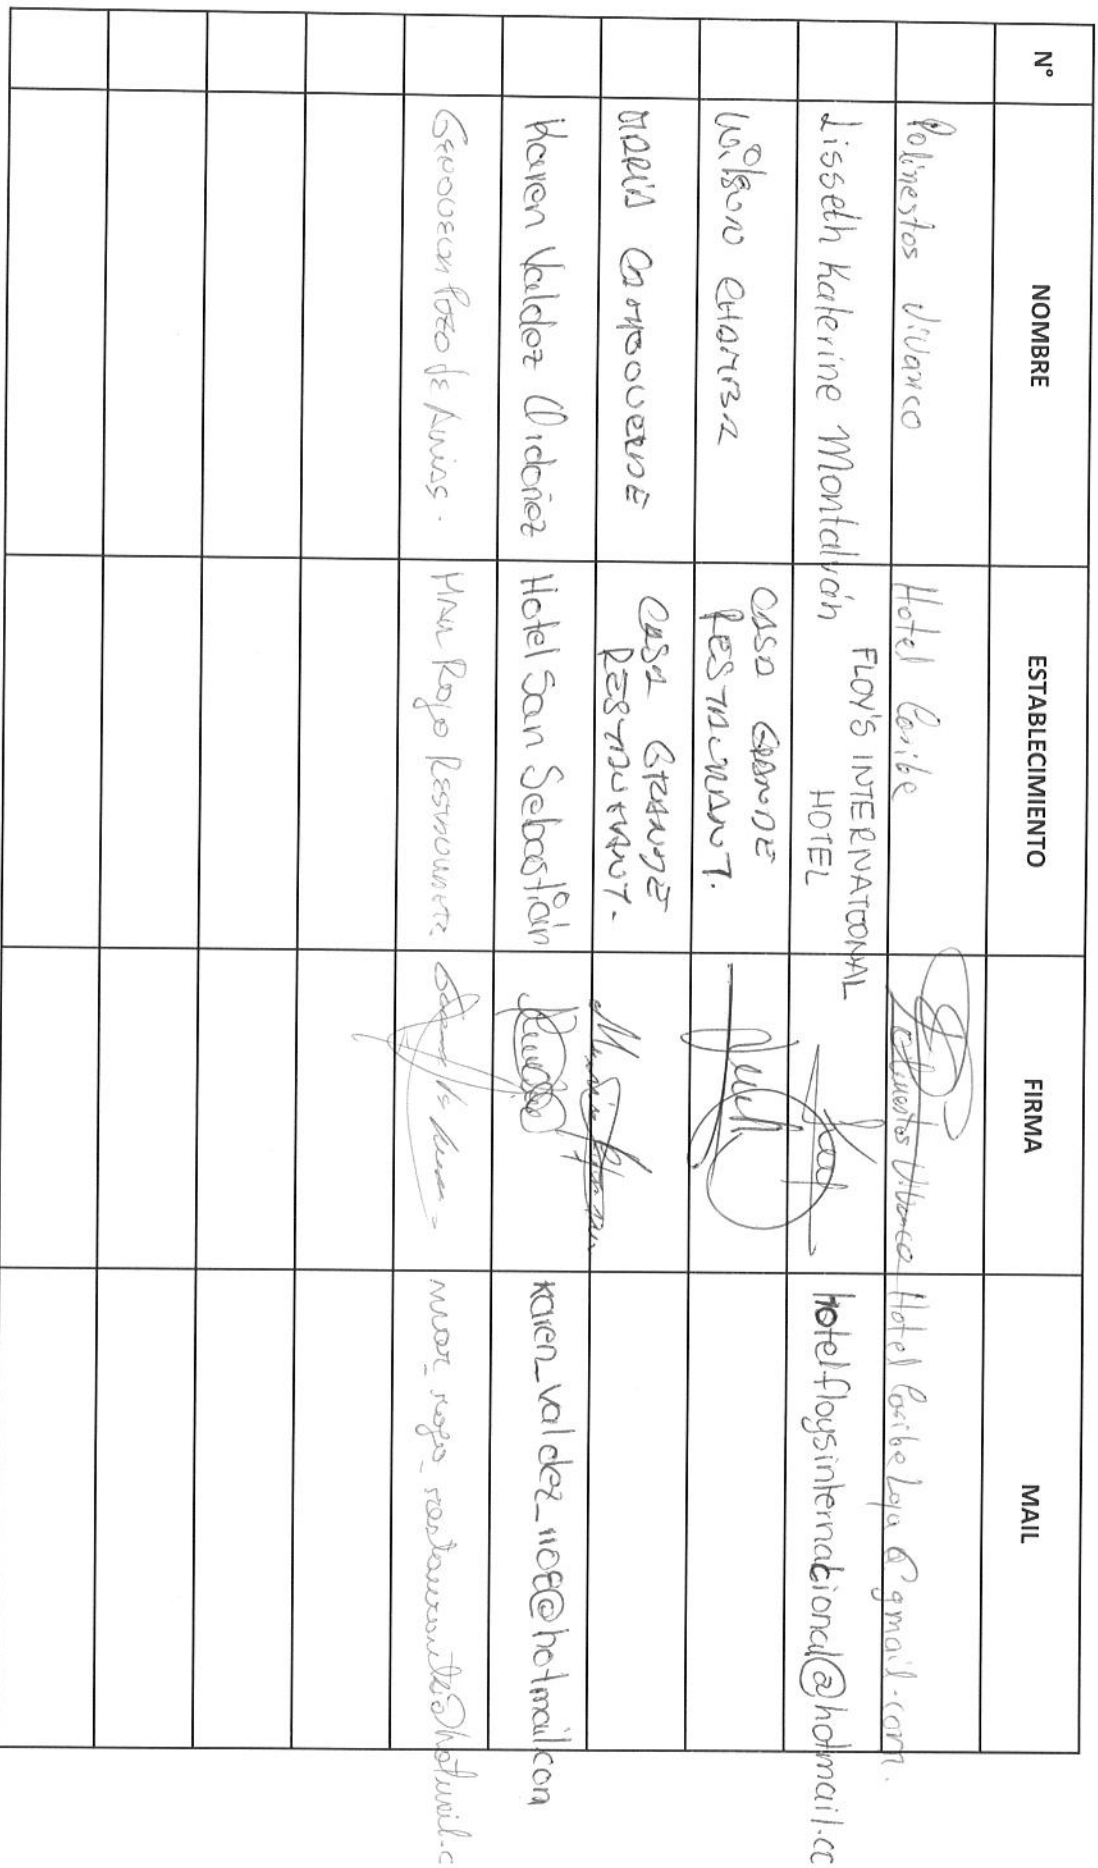 N° NOMBRE ESTABLECIMIENTO FIRMA MAIL
Polinestos Vivanco Hotel Caribe Polinestos Vivanco HotelCaribeLoja@gmail.com.
Lisseth Katerine Montalván FLOY'S INTERNATIONAL
HOTEL hotelfloysinternacional@hotmail.cc
Wilson CHAMBA CASA GRANDE
RESTAURANT.
MARIA CAMPOVERDE CASA GRANDE
RESTAURANT.
Karen Valdez Ordoñez Hotel San Sebastián karen_valdez_1108@hotmail.com
Pozo de MAR Rojo Restaurante. mar_rojo_restaurante@hotmail.c